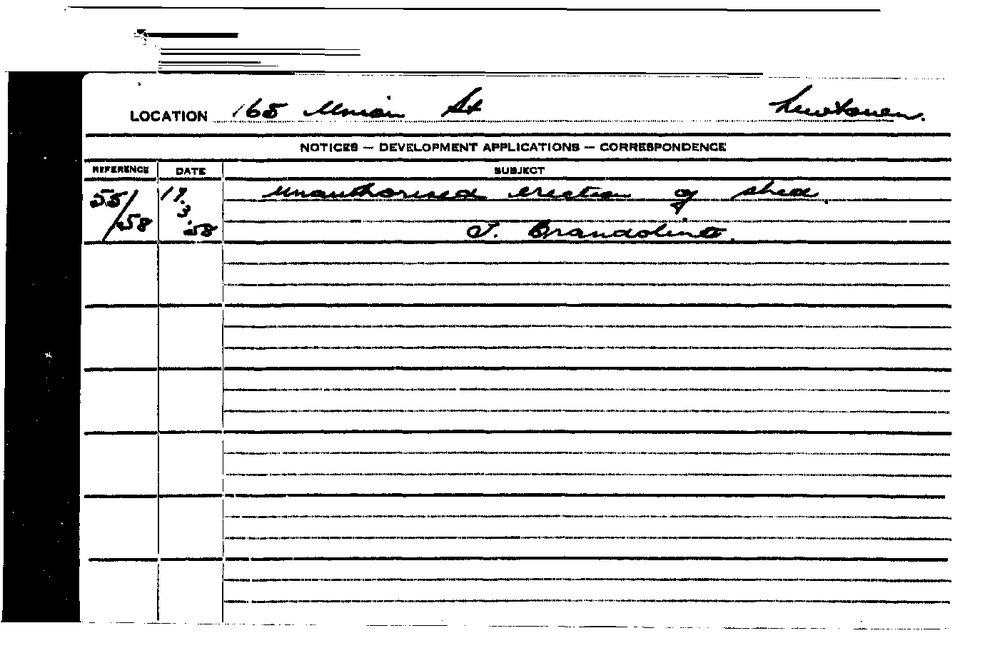 LOCATION 165 Union St Newtown.
NOTICES — DEVELOPMENT APPLICATIONS — CORRESPONDENCE
REFERENCE DATE SUBJECT
55/58 17.3.58 Unauthorised erection of shed.